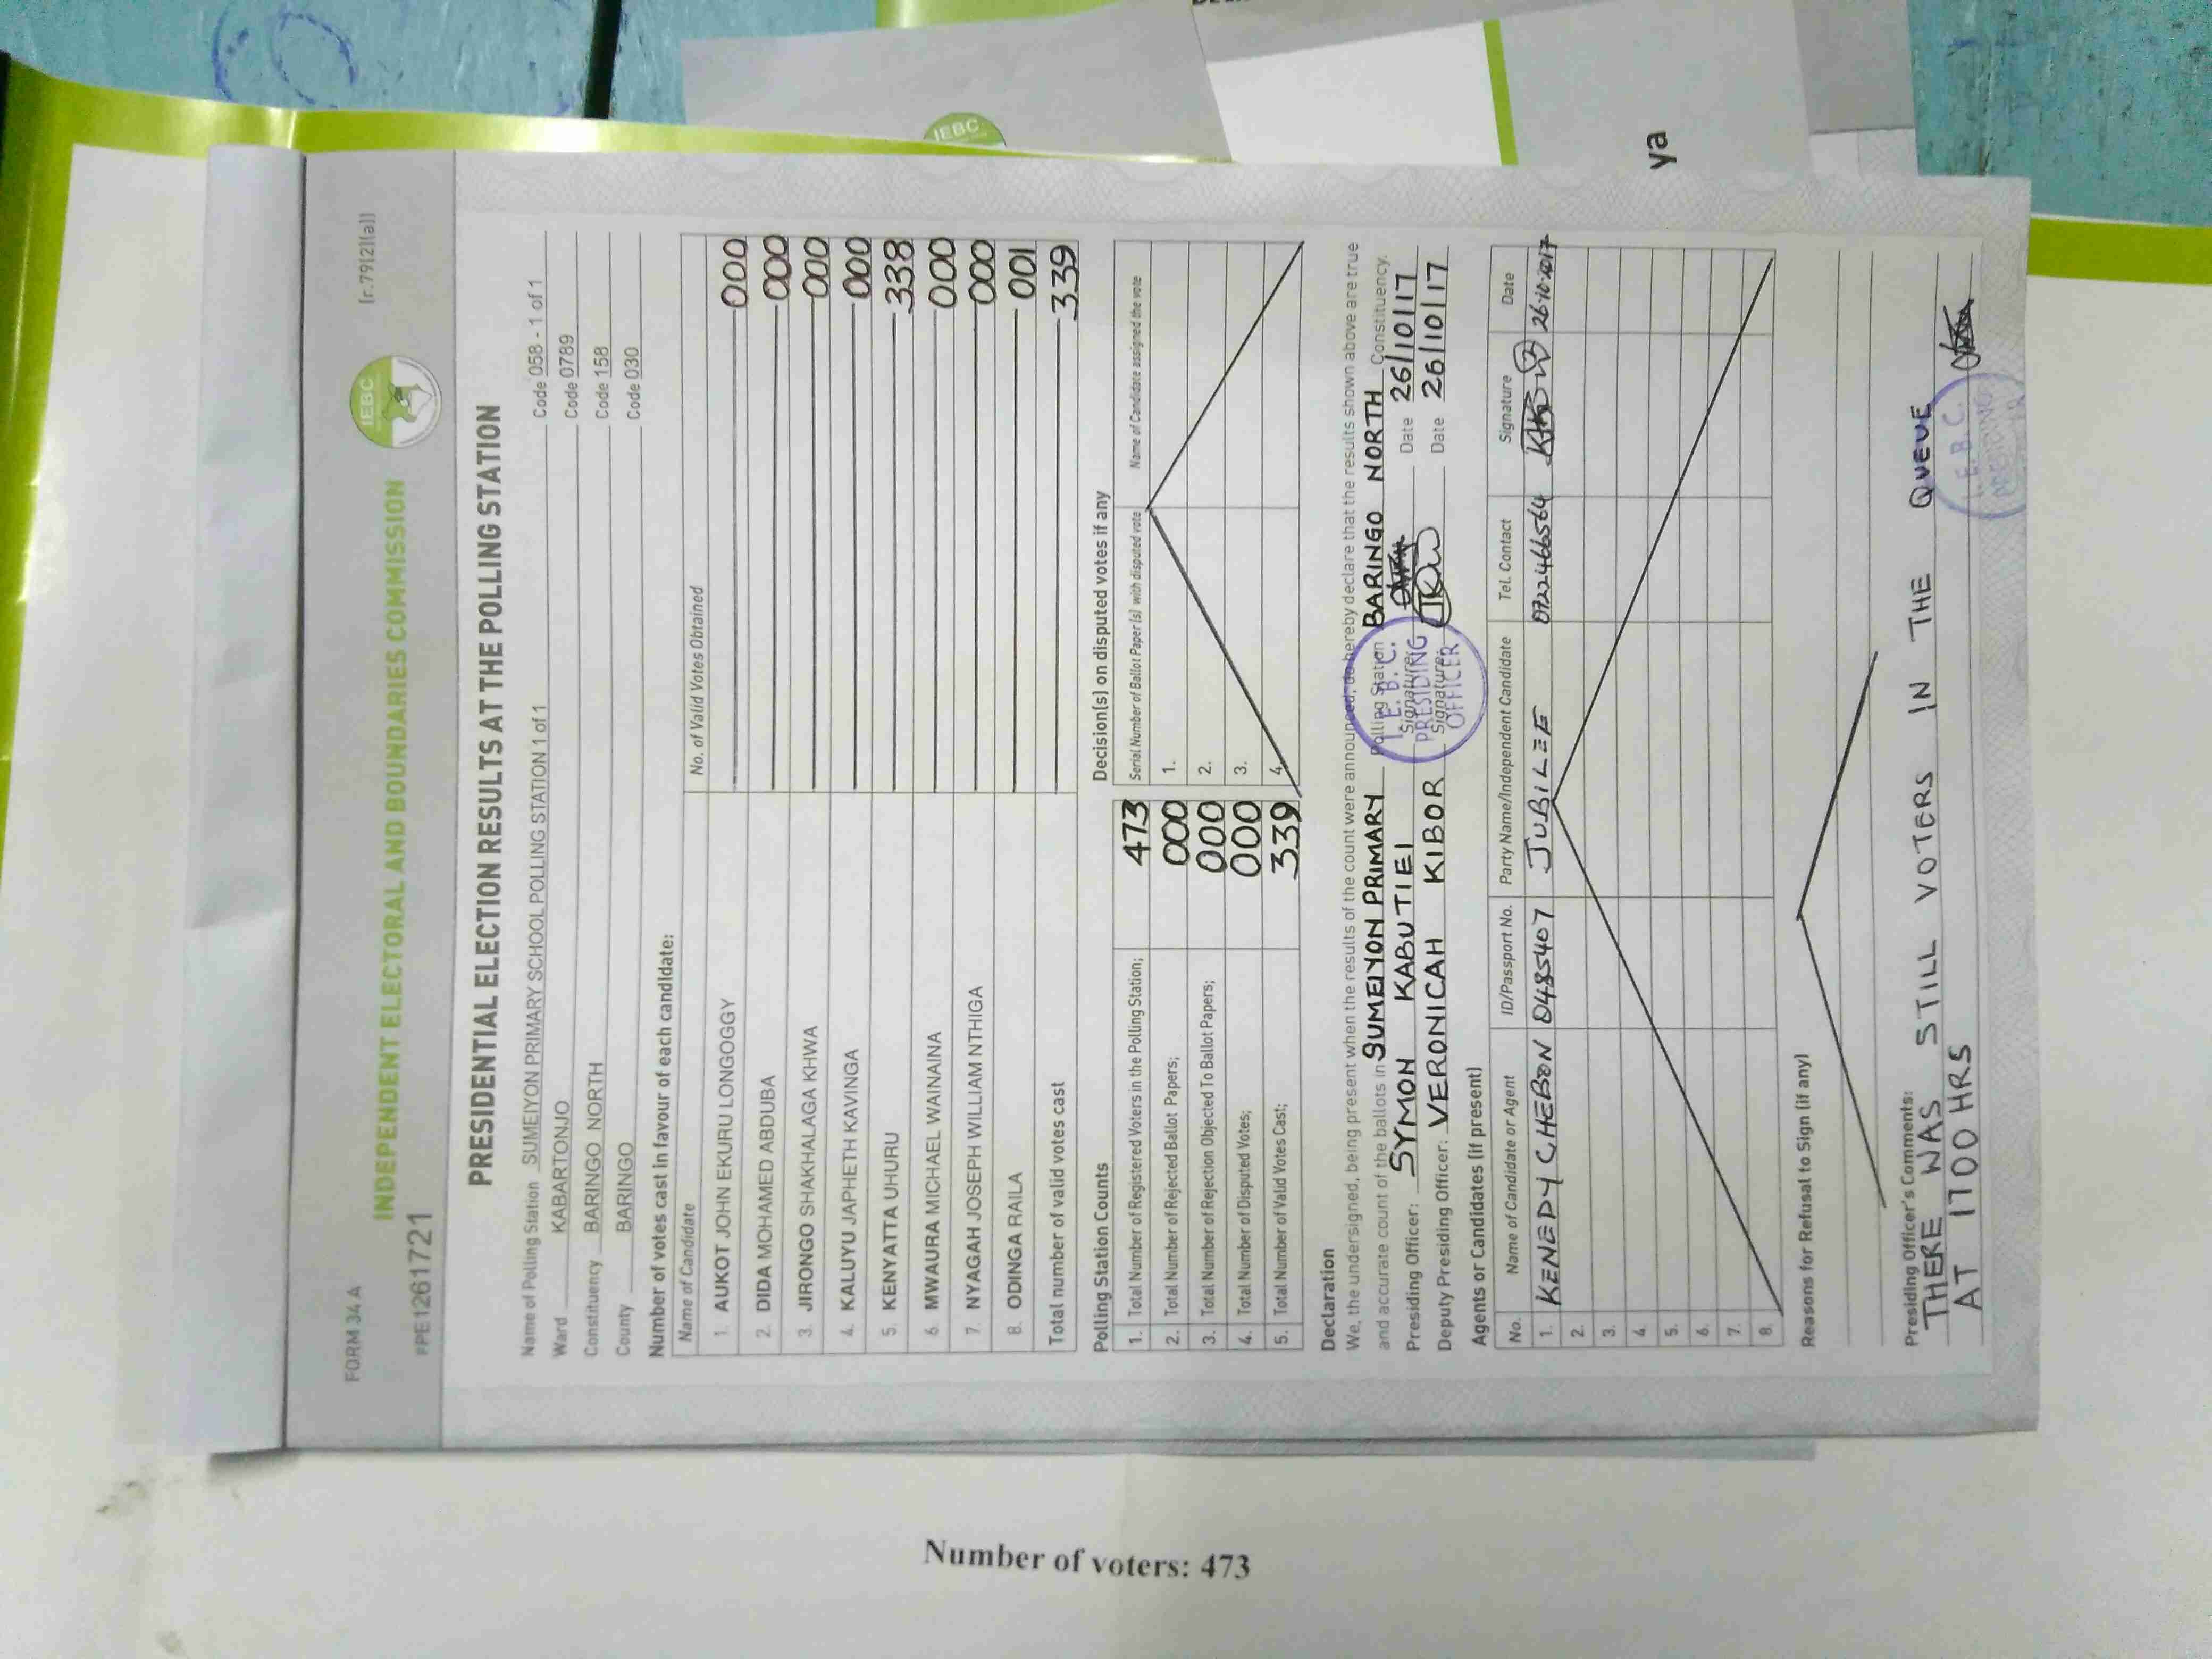 FORM 34 A
[r.79(2)(a)]
INDEPENDENT ELECTORAL AND BOUNDARIES COMMISSION
IEBC
PE1261721
PRESIDENTIAL ELECTION RESULTS AT THE POLLING STATION
Name of Polling Station SUMEIYON PRIMARY SCHOOL POLLING STATION 1 of 1 Code 058 - 1 of 1
Ward KABARTONJO Code 0789
Constituency BARINGO NORTH Code 158
County BARINGO Code 030
Number of votes cast in favour of each candidate:
Name of Candidate No. of Valid Votes Obtained
1. AUKOT JOHN EKURU LONGOGGY 000
2. DIDA MOHAMED ABDUBA 000
3. JIRONGO SHAKHALAGA KHWA 000
4. KALUYU JAPHETH KAVINGA 000
5. KENYATTA UHURU 338
6. MWAURA MICHAEL WAINAINA 000
7. NYAGAH JOSEPH WILLIAM NTHIGA 000
8. ODINGA RAILA 001
Total number of valid votes cast 339
Polling Station Counts
1. Total Number of Registered Voters in the Polling Station; 473
2. Total Number of Rejected Ballot Papers; 000
3. Total Number of Rejection Objected To Ballot Papers; 000
4. Total Number of Disputed Votes; 000
5. Total Number of Valid Votes Cast; 339
Decision(s) on disputed votes if any
Serial Number of Ballot Paper (s) with disputed vote Name of Candidate assigned the vote
1.
2.
3.
4.
Declaration
We, the undersigned, being present when the results of the count were announced, do hereby declare that the results shown above are true
and accurate count of the ballots in SUMEIYON PRIMARY Polling Station BARINGO NORTH Constituency.
Presiding Officer: SYMON KABUTIEI Signature: Date 26/10/17
Deputy Presiding Officer: VERONICAH KIBOR Signature: Date 26/10/17
I. E. B. C.
PRESIDING
OFFICER
Agents or Candidates (if present)
No. Name of Candidate or Agent ID/Passport No. Party Name/Independent Candidate Tel. Contact Signature Date
1. KENEDY CHEBON 0485407 JUBILEE 0722466564
2.
3.
4.
5.
6.
7.
8.
Reasons for Refusal to Sign (if any)
Presiding Officer's Comments:
THERE WAS STILL VOTERS IN THE QUEUE
AT 1700 HRS
I. E. B. C.
PRESIDING
Number of voters: 473
IEBC
ya